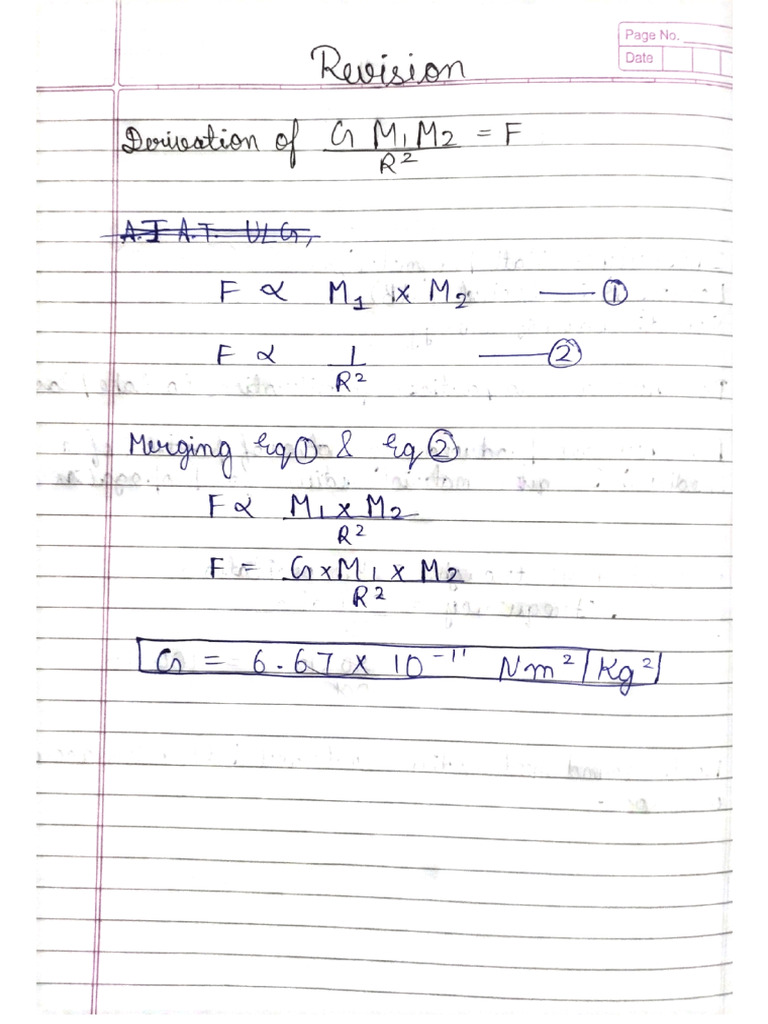 Page No.
Date
Revision
Derivation of G M1 M2 / R² = F
A.T A.T. ULG,
F ∝ M1 × M2 —— ①
F ∝ 1 / R² —— ②
Merging Eq ① & Eq ②
F ∝ M1 × M2 / R²
F = G × M1 × M2 / R²
G = 6.67 × 10⁻¹¹ Nm²/Kg²